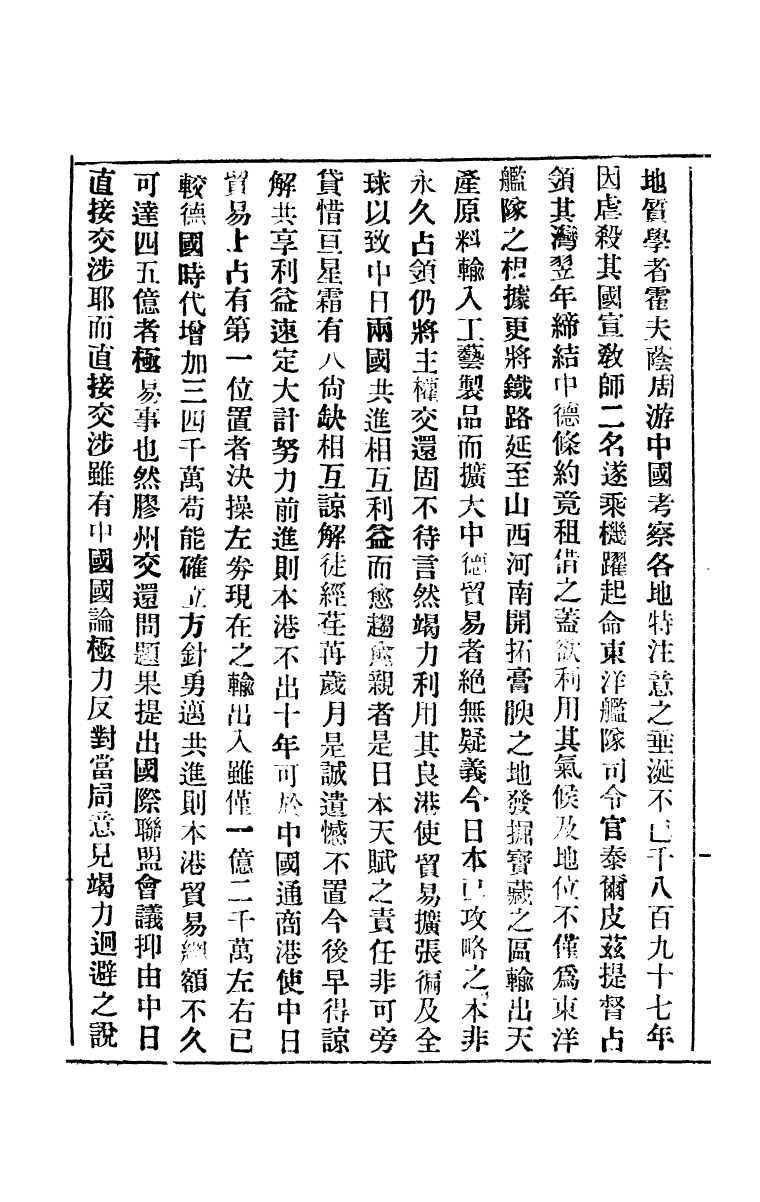 地質學者霍夫蔭周游中國考察各地特注意之垂涎不已千八百九十七年
因虐殺其國宣敎師二名遂乘機躍起命東洋艦隊司令官泰爾皮茲提督占
領其灣翌年締結中德條約竟租借之蓋欲利用其氣候及地位不僅爲東洋
艦隊之根據更將鐵路延至山西河南開拓膏腴之地發掘寶藏之區輸出天
產原料輸入工藝製品而擴大中德貿易者絕無疑義今日本已攻略之本非
永久占領仍將主權交還固不待言然竭力利用其良港使貿易擴張徧及全
球以致中日兩國共進相互利益而愈趨愈親者是日本天賦之責任非可旁
貸惜亘星霜有八尙缺相互諒解徒經荏苒歲月是誠遺憾不置今後早得諒
解共享利益速定大計努力前進則本港不出十年可於中國通商港使中日
貿易上占有第一位置者決操左劵現在之輸出入雖僅一億二千萬左右已
較德國時代增加三四千萬苟能確立方針勇邁共進則本港貿易總額不久
可達四五億者極易事也然膠州交還問題果提出國際聯盟會議抑由中日
直接交涉耶而直接交涉雖有中國國論極力反對當局意見竭力迴避之說